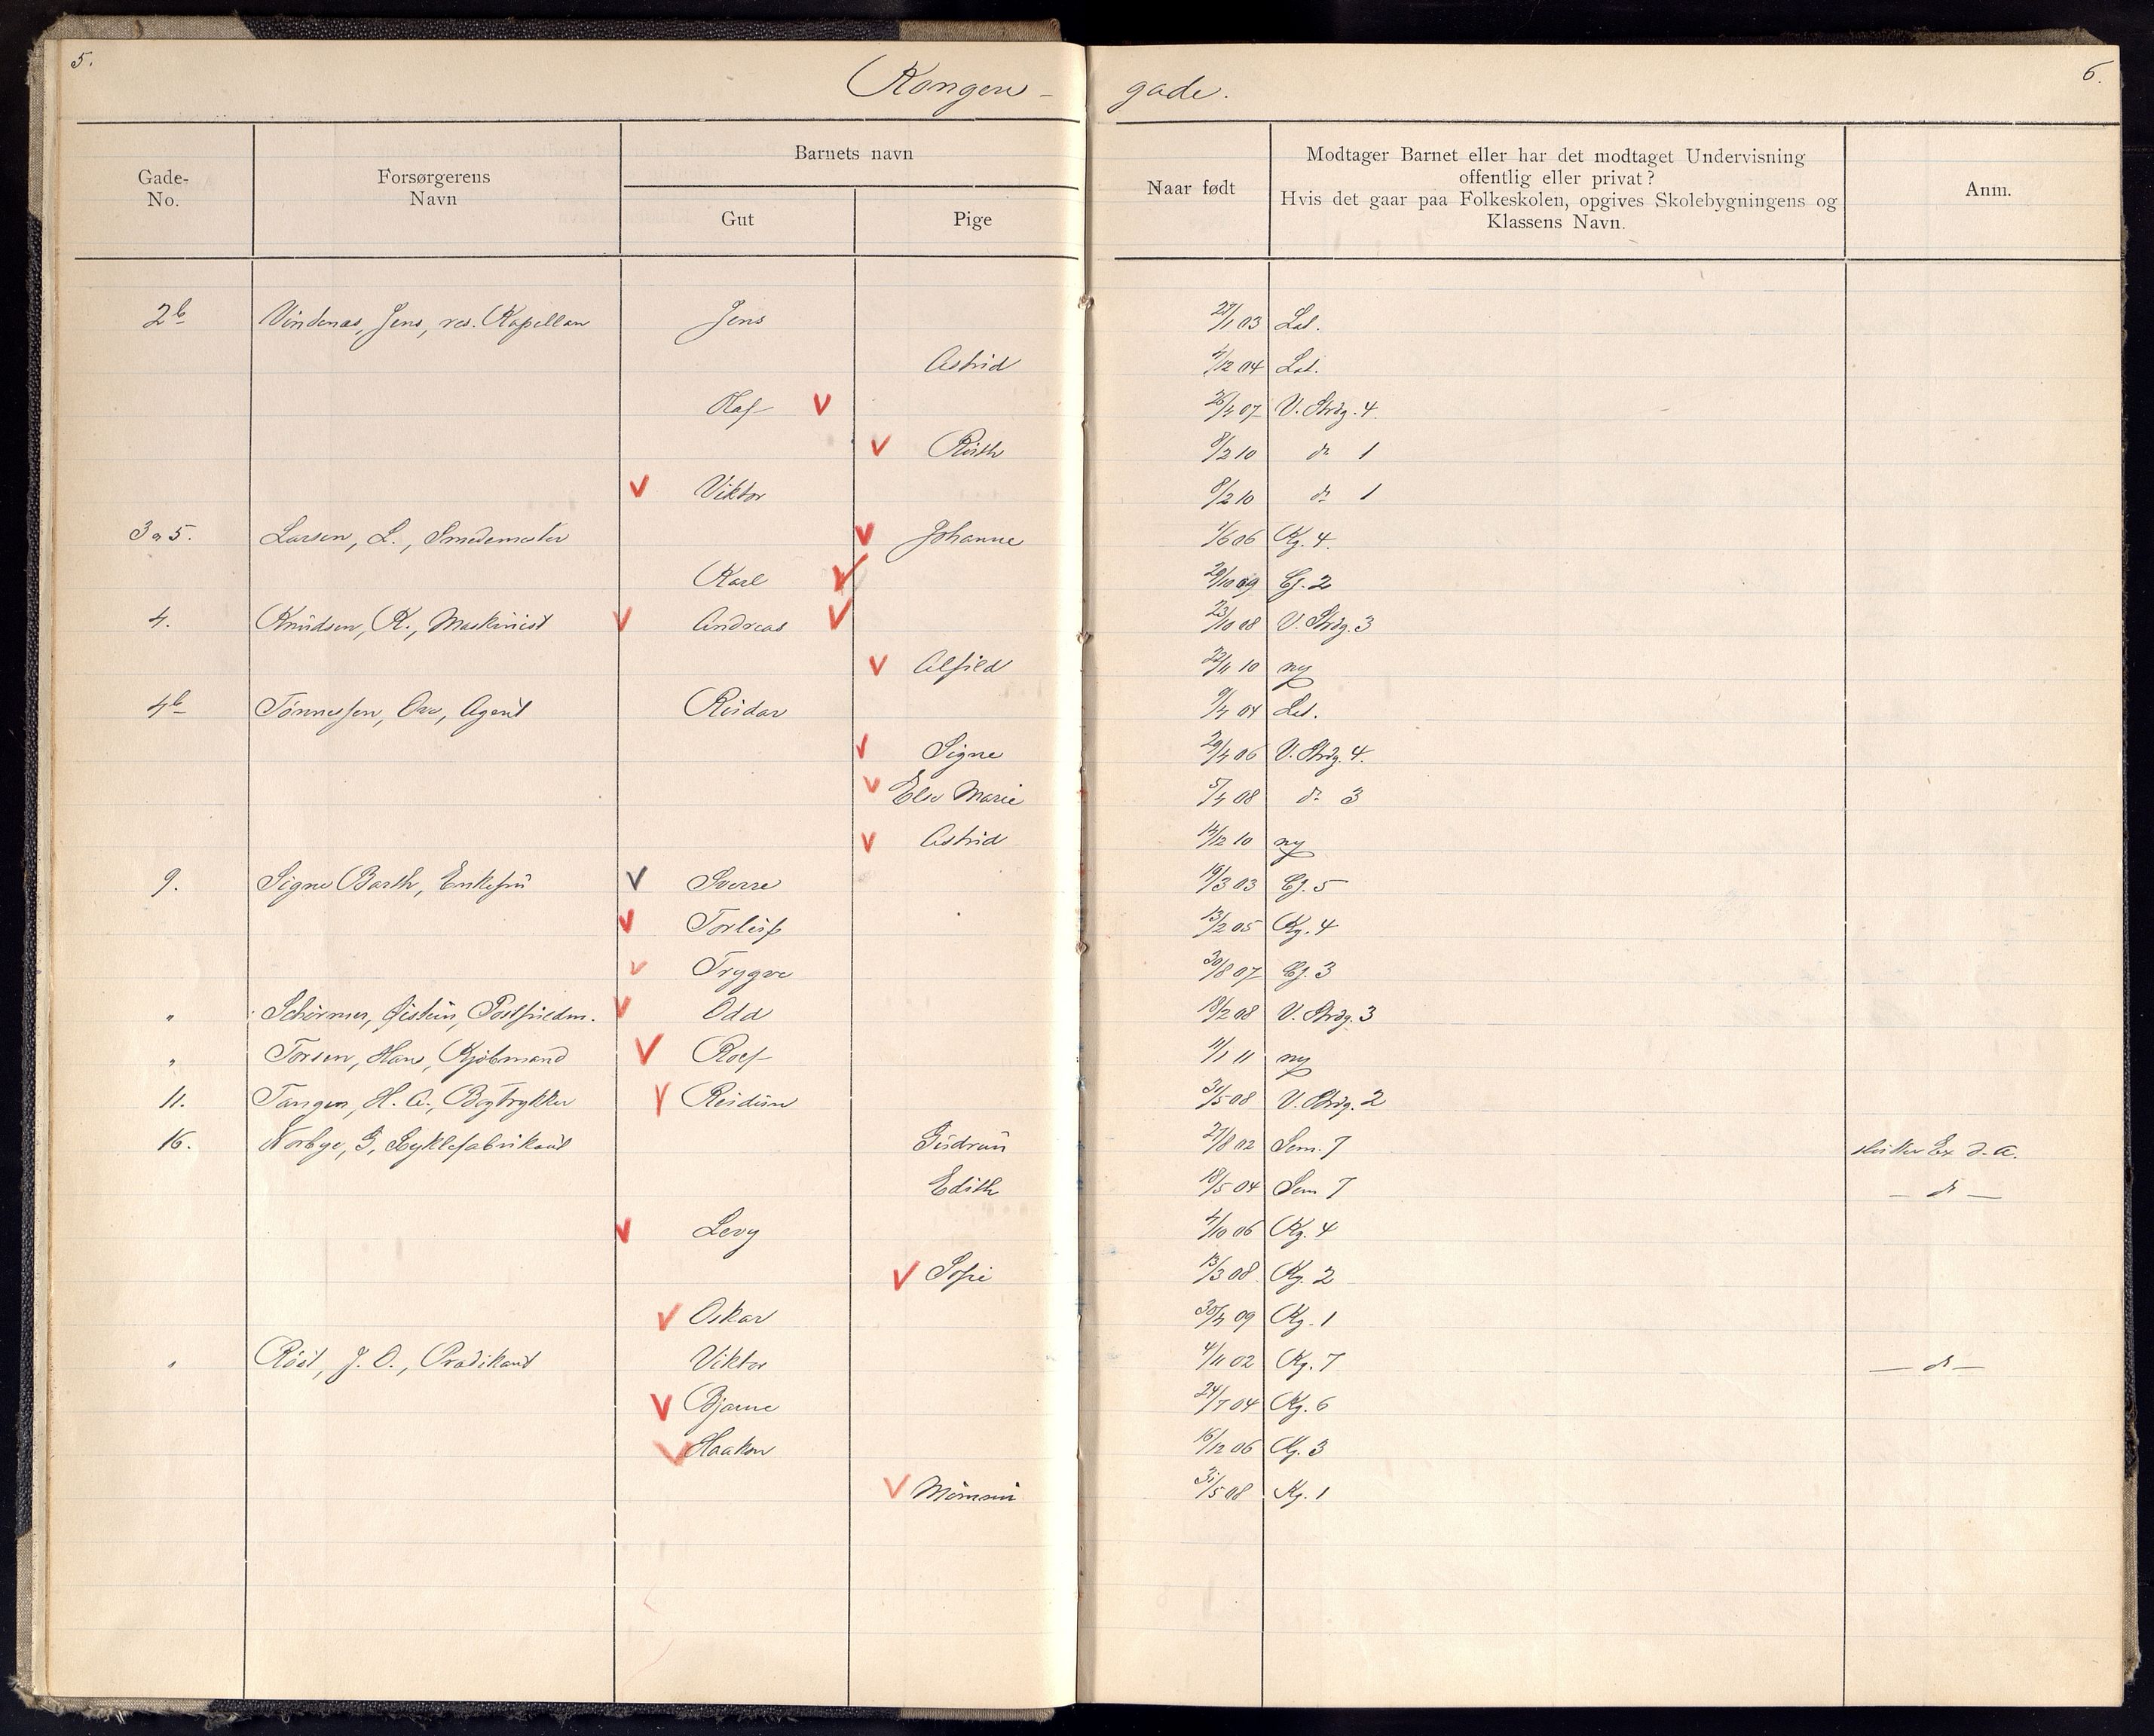 5.
6.
Kongens-
gade.
Gade-
No.
Forsørgerens
Navn
Barnets navn
Gut
Pige
Naar født
Modtager Barnet eller har det modtaget Undervisning
offentlig eller privat?
Hvis det gaar paa Folkeskolen, opgives Skolebygningens og
Klassens Navn.
Anm.
2b Vindenæs, Jens, res. Kapellan Jens 27/1 03 Lat.
Astrid 4/12 04 Lat.
Olaf V 26/4 07 V. Strdg. 4.
V Ruth 8/2 10 do 1
V Viktor 8/2 10 do 1
3 og 5. Larsen, L., Smedemester V Johanne 1/6 06 Kg. 4.
Karl V 20/10 09 Ej. 2
4. Knudsen, K., Maskinist V Andreas V 23/10 08 V. Strdg. 3
V Alfild 22/11 10 ny
4b Tönnessen, Ove, Agent Reidar 9/4 04 Lat.
V Signe 29/4 06 V. Strdg. 4.
V Else Marie 5/4 08 do 3
V Astrid 14/12 10 ny
9. Signe Barth, Enkefru V Sverre 19/3 03 Ej. 5
V Torleif 13/2 05 Kg. 4
V Trygve 30/8 07 Ej. 3
" Øistein, V Odd 18/2 08 V. Strdg. 3
" Torsen, Hans, Kjøbmand V Rolf 11/1 11 ny
11. Tangen, H. A., Bogtrykker V Reidun 31/5 08 V. Strdg. 2
16. Norbye, G, Sykkelfabrikant Gudrun 27/8 02 Sem. 7 slutter Ex d. a.
Edith 18/5 04 Sem 7 — do —
V Levy 4/10 06 Kg. 4
V Sofie 13/3 08 Kg. 2
V Oskar 30/4 09 Kg. 1
" Røst, J. O., Prædikant Viktor 4/11 02 Kg. 7 — do —
V Bjarne 24/7 04 Kg. 6
V Haakon 16/12 06 Kg. 3
V 31/5 08 Kg. 1